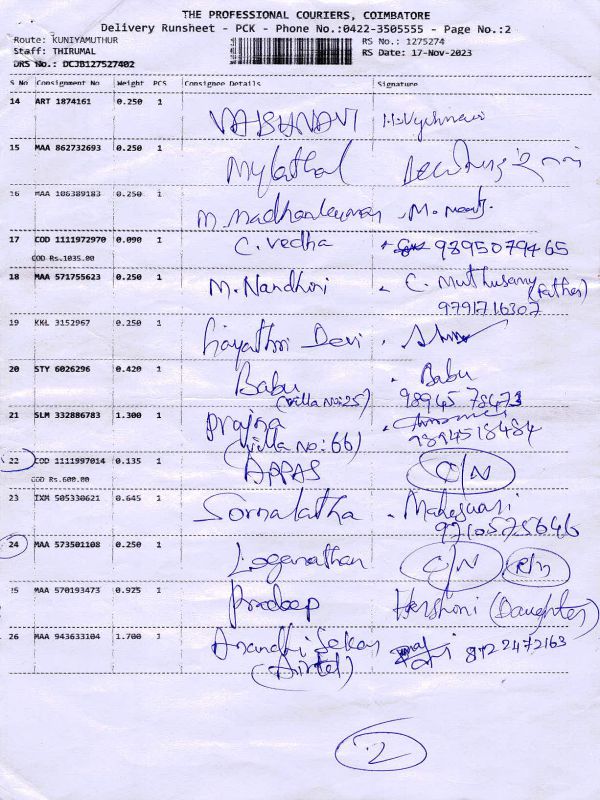 THE PROFESSIONAL COURIERS, COIMBATORE
Delivery Runsheet - PCK - Phone No.:0422-3505555 - Page No.:2
Route: KUNIYAMUTHUR RS No.: 1275274
Staff: THIRUMAL RS Date: 17-Nov-2023
DRS No.: DCJB127527402
S No Consignment No Weight PCS Consignee Details Signature
14 ART 1874161 0.250 1 VAISHNAVI
15 MAA 862732693 0.250 1 Mylathal
16 MAA 106389183 0.250 1 M. Madhankumar
17 COD 1111972970 0.090 1 C. Vedha 9895079465
COD Rs.1035.00
18 MAA 571755623 0.250 1 M. Nandhini C. Muthusamy (Father)
9791716307
19 KKL 3152967 0.250 1 Gayathri Devi
20 STY 6026296 0.420 1 Babu Babu
(Villa No:25) 9894578473
21 SLM 332886783 1.300 1 Prajna
(Villa No:66) 9894518484
22 COD 1111997014 0.135 1 APPAS C/N
COD Rs.600.00
23 IXM 505330621 0.645 1 Sornalatha Maheswari
9710575646
24 MAA 573501108 0.250 1 Loganathan C/N
25 MAA 570193473 0.925 1 Pradeep Harshoni (Daughter)
26 MAA 943633104 1.700 1 Anandhi Sekar 8122472163
(Airtel)
2